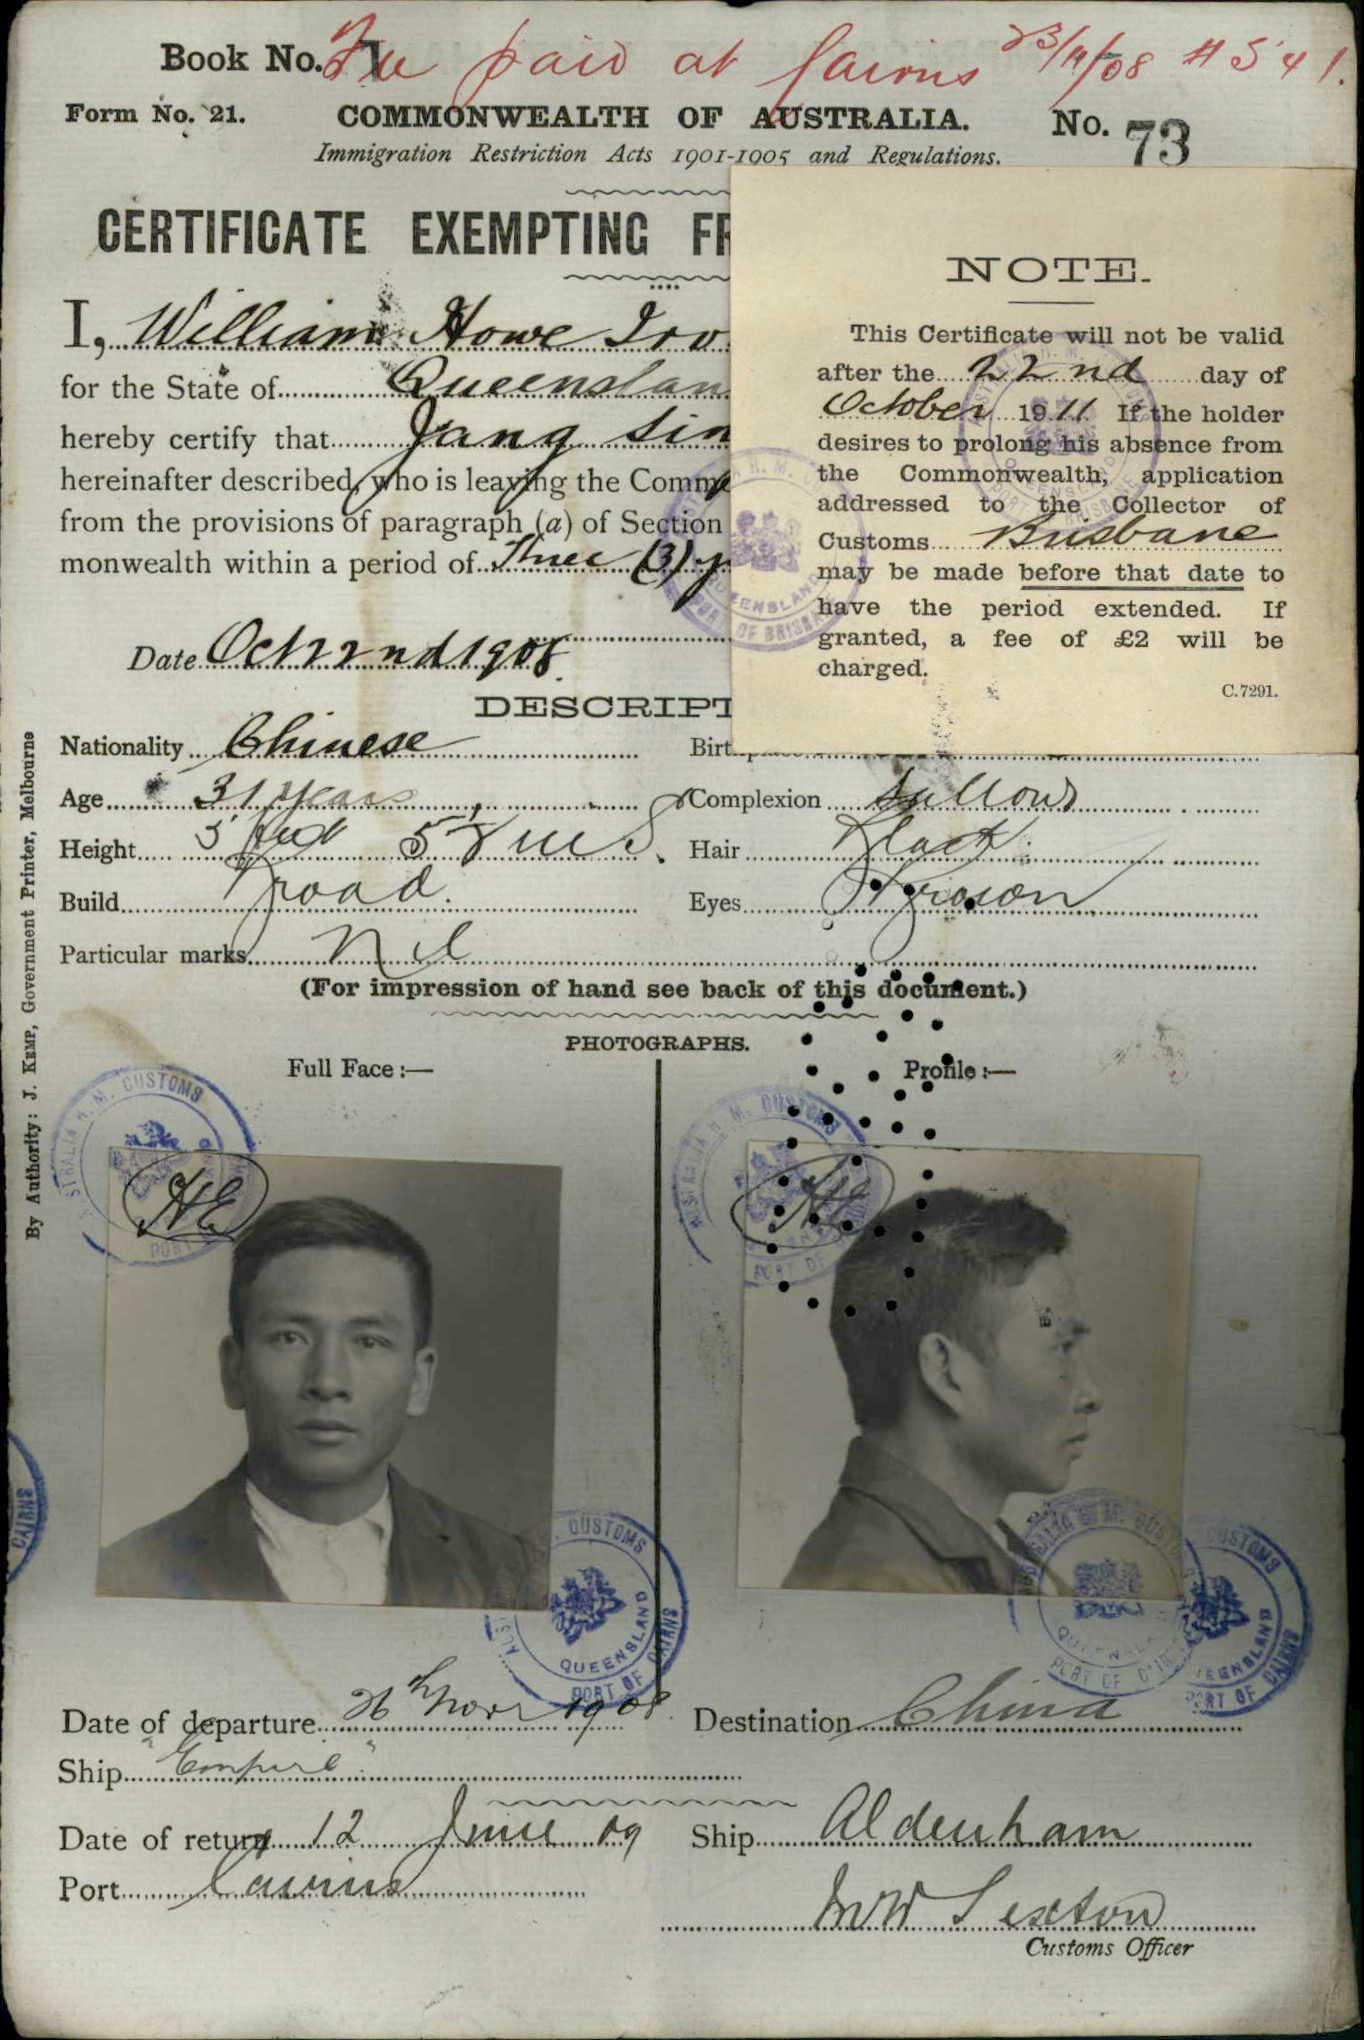 Book No. 7 Fee paid at Cairns 23/11/08 # 541.
Form No. 21. COMMONWEALTH OF AUSTRALIA. No. 73
Immigration Restriction Acts 1901-1905 and Regulations.
CERTIFICATE EXEMPTING FR
I, William Howe Irv
for the State of Queenslan
hereby certify that
hereinafter described, who is leaving the Comm
from the provisions of paragraph (a) of Section
monwealth within a period of Three (3) y
Date Oct 22nd 1908.
NOTE.
This Certificate will not be valid
after the 22nd day of
October 1911 If the holder
desires to prolong his absence from
the Commonwealth, application
addressed to the Collector of
Customs Brisbane
may be made before that date to
have the period extended. If
granted, a fee of £2 will be
charged.
C.7291.
DESCRIPT
Nationality Chinese Birthplace
Age 31 years Complexion Sallow
Height 5 feet 5 ins. Hair Black
Build Broad. Eyes Brown
Particular marks Nil
(For impression of hand see back of this document.)
PHOTOGRAPHS.
Full Face :— Profile :—
By Authority: J. KEMP, Government Printer, Melbourne
AUSTRALIA H. M. CUSTOMS
QUEENSLAND
PORT OF BRISBANE
HE
HE
AUSTRALIA H. M. CUSTOMS
QUEENSLAND
PORT OF CAIRNS
CAIRNS
Date of departure 26th Novr 1908. Destination China
Ship "Empire"
Date of return 12 June 09 Ship Aldenham
Port Cairns
MW Sexton
Customs Officer